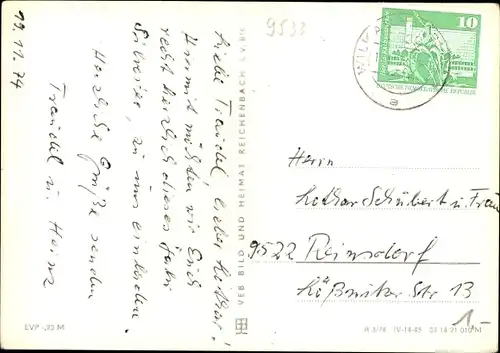 12.11.74
Liebe Traudel, lieber Lothar!
Hiermit möchten wir Euch
recht herzlich dieses Jahr
Silvester, zu uns einladen.
Herzliche Grüße senden
Traudel u. Heinz
VEB BILD UND HEIMAT REICHENBACH I. V. BK
9533
10
DEUTSCHE DEMOKRATISCHE REPUBLIK
a
Herrn
Lothar Schubert u. Frau
9522 Reinsdorf
Lößnitzer Str 13
1,-
EVP -,20 M
A 3/74 IV-14-45 03 14 21 010 M